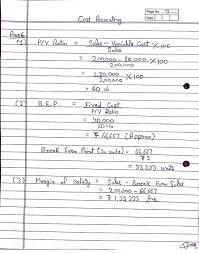 Page No.
Date
Cost Accounting
Ans 6
(1) P/V Ratio = Sales - Variable Cost × 100
Sales
= 2,00,000 - 80,000 × 100
2,00,000
= 1,20,000 × 100
2,00,000
= 60%
(2) B.E.P. = Fixed Cost
P/V Ratio
= 40,000
60%
= ₹ 66,667 (Approx)
Break Even Point (In units) = 66,667
₹ 2
= 33,333 units
(3) Margin of safety = Sales - Break Even Sales
= 2,00,000 - 66,667
= ₹ 1,33,333 Ans.